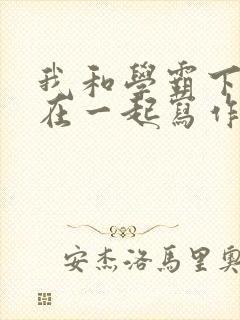 我和學霸下
在一起寫作
安杰洛馬里奧